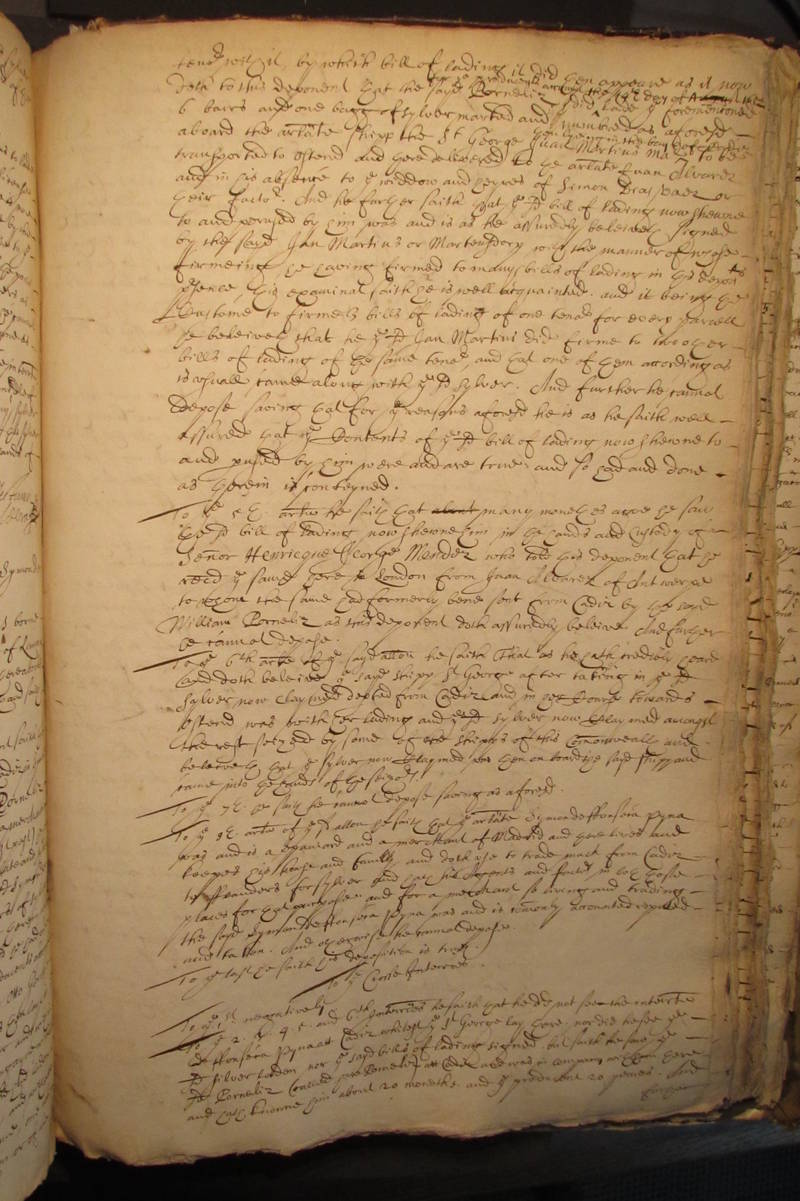 teno:r with it, by which bill of lading it did then appeare as it now
doth to this deponent that the sayd Corneliz did lade the forementioned
6 barrs and one bagg of sylver marked and numbred as aforesd
aboard the arlate shipp the St George Juan Martins Ma:r to bee
transported to Ostend and there delivered to the arlate Juan Alvarez
and in his absence to ye widdow and heyres of Simon Dias Vaez or
their facto:r. And he further saith that ye sd bill of lading now shewne
to and perused by him was and is as he assuredly beleiveth signed
by the sayd Jan Martins or Martensdorp with the manner of whose
firmeing he having firmed to many bills of lading in his depots
psence, this examinat saith he is well acquainted. and it being the
Custome to firme 3 bills of lading of one teno:r for every parcell
he beleiveth that he ye sd Jan Martins did firme to two other
bills of lading of the same teno:r, and that one of them according as
is usuall came along with ye sd sylver. And further he cannot
depose saving that for ye reasons aforesd he is as he saith well
assured that ye Contents of ye sd bill of lading now shewne to
and pused by him were and are true and so had and done
as therein is conteyned.
To ye 5th. arle he saith that about many moneths agoe he saw
the sd bill of lading now shewne him in the hands and custody of
Señor Henricque Jeorge Mendez who told this deponent that he
recd ye same here in London from Juan Alvarez of Antwerpe
to whom the same had formerly bene sent from Cadiz by the sayd
William Corneliz as this deponent doth assuredly beleive. And further
he cannot depose.
To ye 6th arle of ye sayd allon he saith That as he hath credibly heard
and doth beleive ye sayd shipp St George after taking in ye sd
sylver now claymed depted from Cadiz and in her Course towards
Ostend was with her lading and ye sd sylver now Claymed amongst
the rest seized by some of the shipps of this Commonwealth and
beleiveth that ye sylver now Claymed was then on board the sayd shipp and
came into the hands of the seizo:rs.
To ye 7th. he saith he cannot depose saving as aforesd.
To ye 8th. arle of ye sd allon he saith that ye arlate Symon de ffonseca Pyna
was and is a Spaniard and a merchant of Madrid and there lives and
keepes his house and family, and doth use to trade much from Cadiz
to fflanders for sylver and hath his agents and facto:rs in both those
places for that purpose. and for a merchant so living and trading
the sayd Symon de ffonseca Pyna was and is comonly accounted reputed
and taken. And otherwise he cannot depose.
To ye last he saith his deposition is true.
To ye Crosse Interries.
To ye 1st. negatively
To ye 2. 3. 4th. and 5th Interries he saith that he did not see the interrte
de ffonseca Pyna att Cadiz whilest ye St George lay there, nor did he see ye
sd silver laden, nor ye sayd bills of lading signed, but saith he saw ye
sd Corneliz att Cadiz and was in company with him there
and hath knowne him about 20 moneths. and ye producent 20 yeares. And
further